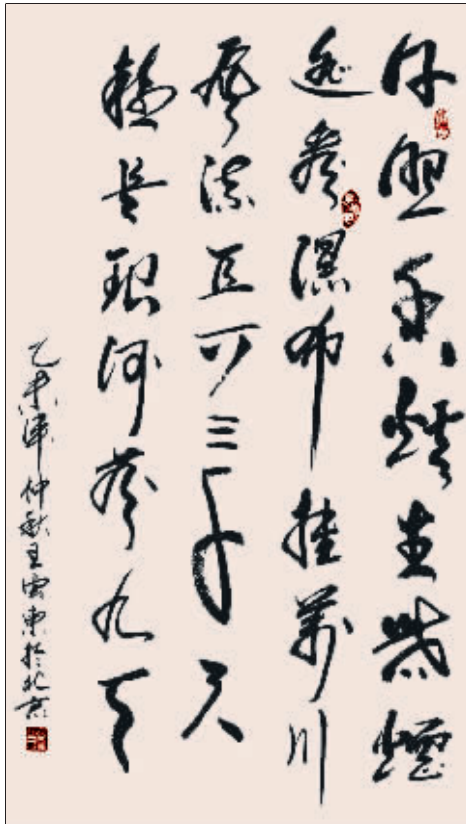 日照香爐生紫煙
遙看瀑布挂前川
飛流直下三千尺
疑是銀河落九天
乙未年仲秋王雲東於北京